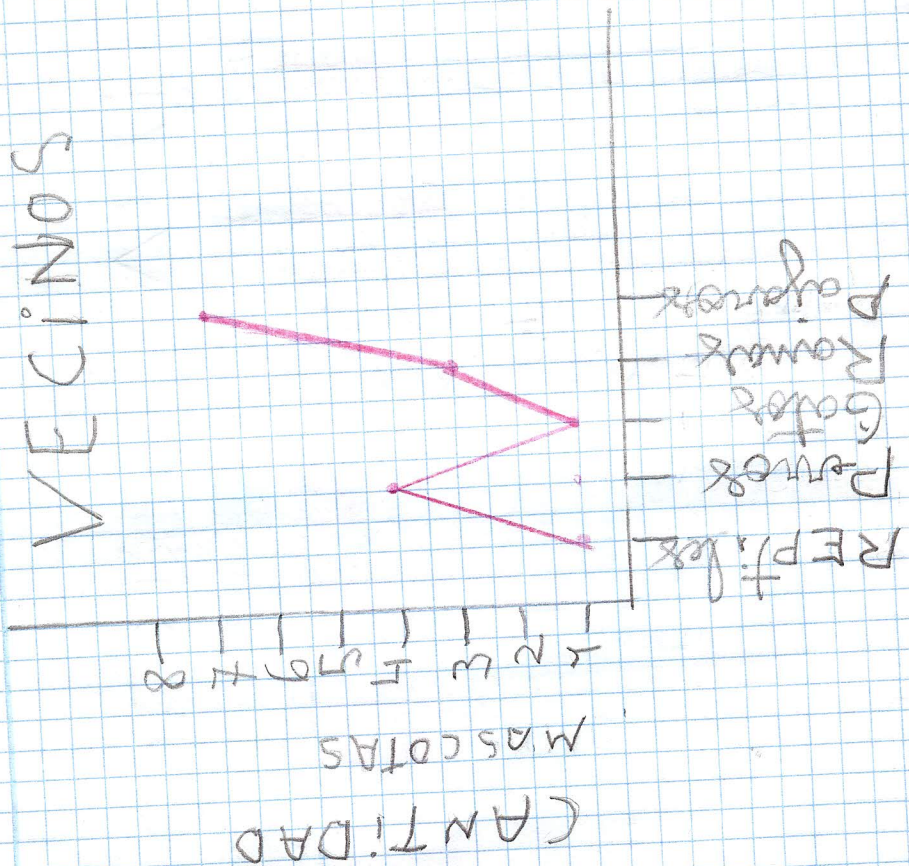 VECiNOS
CANTiDAD
MASCOTAS
8
7
6
5
4
3
2
1
REPtiles
Perros
Gatos
Ranas
Pajaros